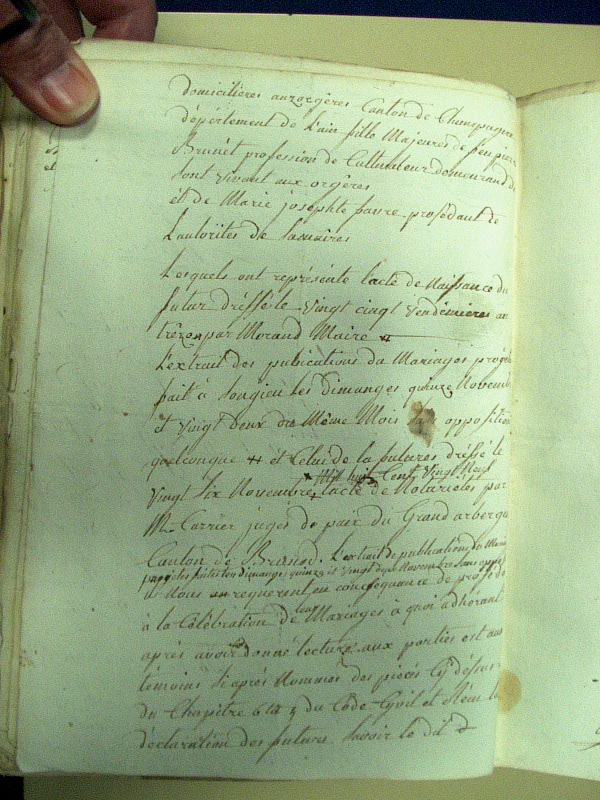 domiciliéres auxorgères Canton de Champagne
département de L'ain fille Majeures de
Brunet profession de Cultivateur demeurand
sont vivant aux orgères
et de Marie josephte favre profédant de
L'autorites de
Lesquels ont représenté l'acte de Naissance du
futur dréssé le Vingt cinqt Vendémiéres an
trèze par Morand Maire
L'extrait des publications du Mariages projetté
fait a Songieu les dimanges quinze Novembre
et Vingt deux du Même Mois sans opposition
quelconque # et Celui de la futures dréssé le
Mil huit Cent Vingt Neuf
Vingt six Novembre, l'acte de Notariétés par
M. Carrier juges de paix du Grand arbergu
Canton de Brenod. L'extrait de publications du Mariage
projettés faites les dimanges quinze et vingt deux Novembre Sans oppo
et Nous en requerent en conséquance de proféde
à la Célébration de leur Mariages à quoi adhérant
après avoir donné lecture aux parties et aux
témoins ci après Nommés des pieces Cy déssus
du Chapitre 6 du Code Civil et
déclaration des futurs Savoir le dit